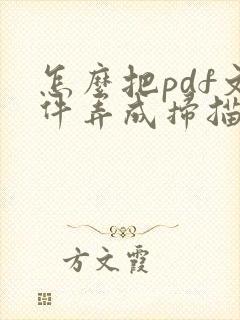 怎麼把pdf文
件弄成掃描
方文霞